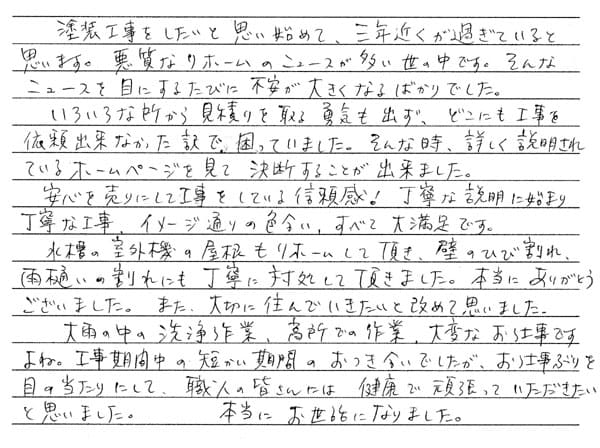 塗装工事をしたいと思い始めて、三年近くが過ぎていると
思います。悪質なリホームのニュースが多い世の中です。そんな
ニュースを目にするたびに不安が大きくなるばかりでした。
いろいろな所から見積りを取る勇気も出ず、どこにも工事を
依頼出来なかった訳で、困っていました。そんな時、詳しく説明され
ているホームページを見て決断することが出来ました。
安心を売りにして工事をしている信頼感!丁寧な説明に始まり
丁寧な工事 イメージ通りの色合い、すべて大満足です。
水槽の室外機の屋根もリホームして頂き、壁のひび割れ、
雨樋いの割れにも丁寧に対処して頂きました。本当にありがとう
ございました。また、大切に住んでいきたいと改めて思いました。
大雨の中の洗浄作業、高所での作業、大変なお仕事です
よね。工事期間中の短かい期間のおつき合いでしたが、お仕事ぶりを
目の当たりにして、職人の皆さんには健康で頑張っていただきたい
と思いました。 本当にお世話になりました。